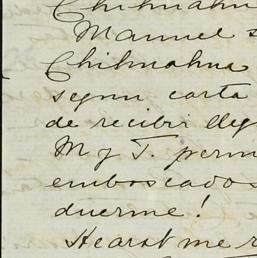 Chihuahu
Manuel s
Chihuahua
segun carta
de recibir
M y T. perm
emboscados
duerme!
Hearst me r